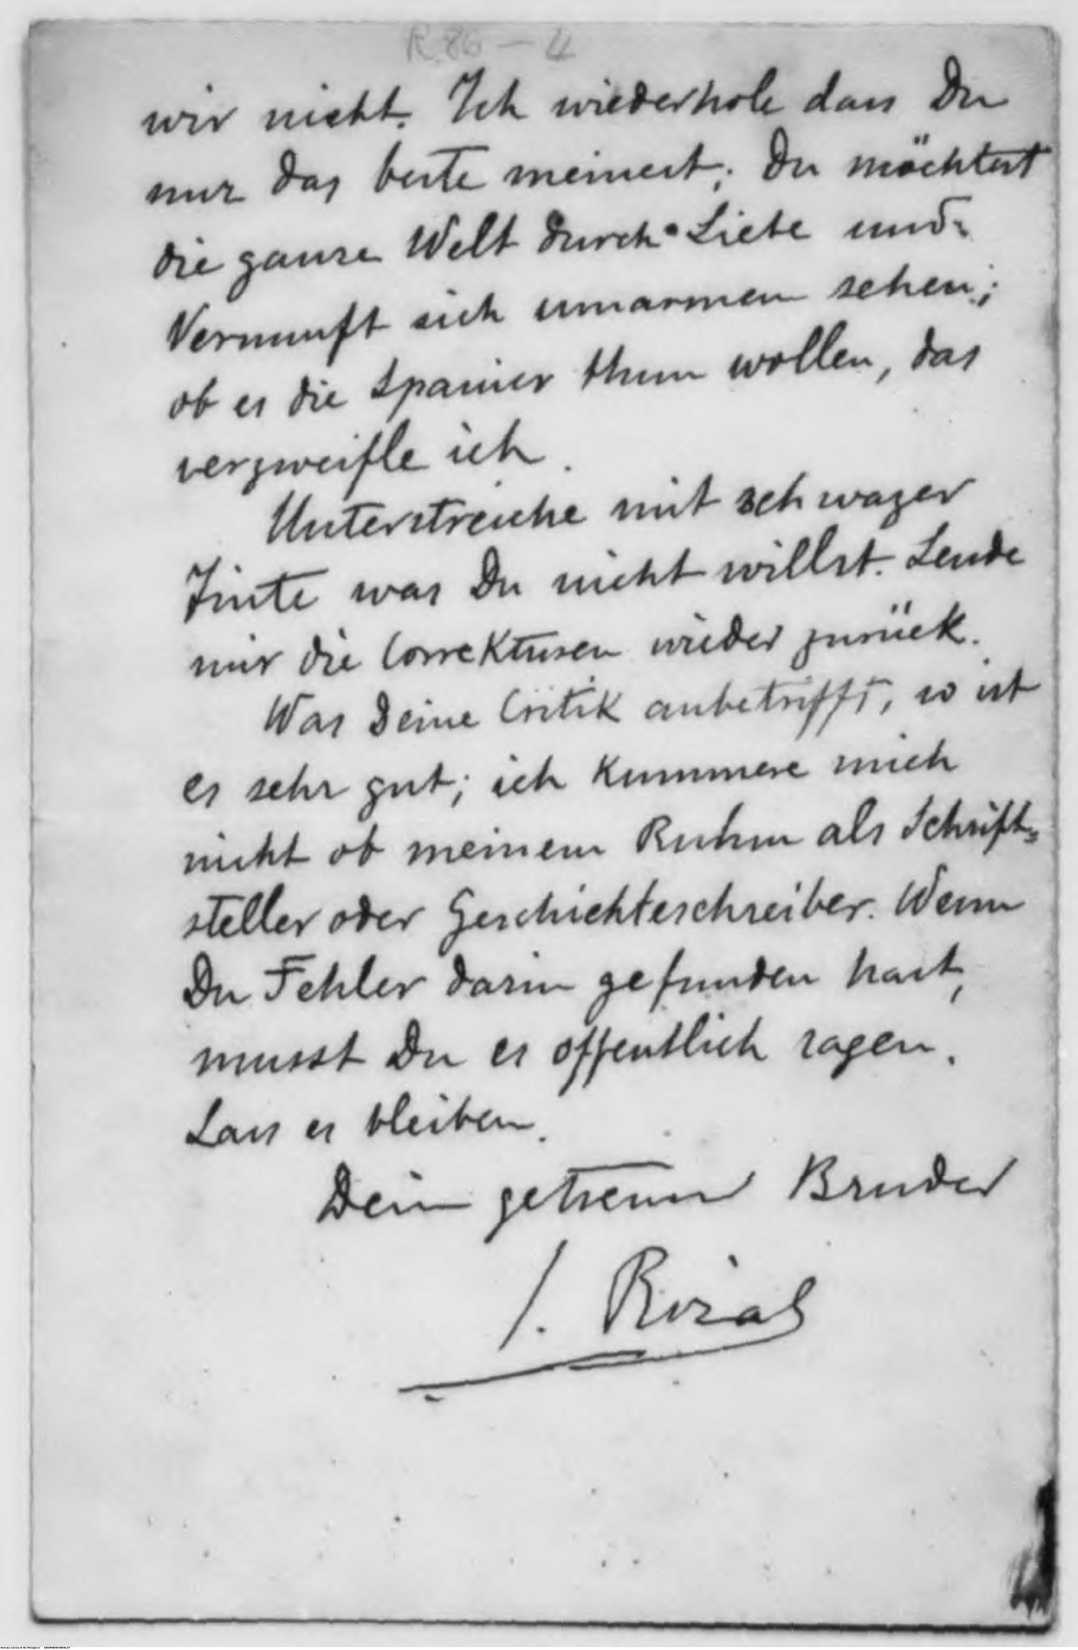 R. 86 - 4
wir nicht. Ich wiederhole dass Du
nur das beste meinest; Du möchtest
die ganze Welt durch Liebe und
Vernunft sich umarmen sehen;
ob es die Spanier thun wollen, das
verzweifle ich.
Unterstreiche mit schwazer
Tinte was Du nicht willst. Sende
mir die Correkturen wieder zurück.
Was Deine Critik anbetrifft, so ist
es sehr gut; ich Kummere mich
nicht ob meinem Ruhm als Schrift=
steller oder Geschichteschreiber. Wenn
Du Fehler darin gefunden hast,
musst Du es offentlich sagen.
Lass es bleiben.
Dein getreuer Bruder
J. Rizal